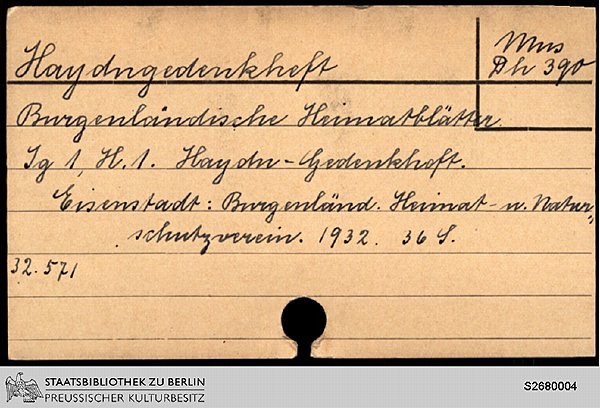 Mus
Dh 390
Haydngedenkheft
Burgenländische Heimatblätter.
Jg 1, H. 1. Haydn-Gedenkheft.
Eisenstadt: Burgenländ. Heimat- u. Natur-
schutzverein. 1932. 36 S.
32.571
STAATSBIBLIOTHEK ZU BERLIN
PREUSSISCHER KULTURBESITZ
S2680004